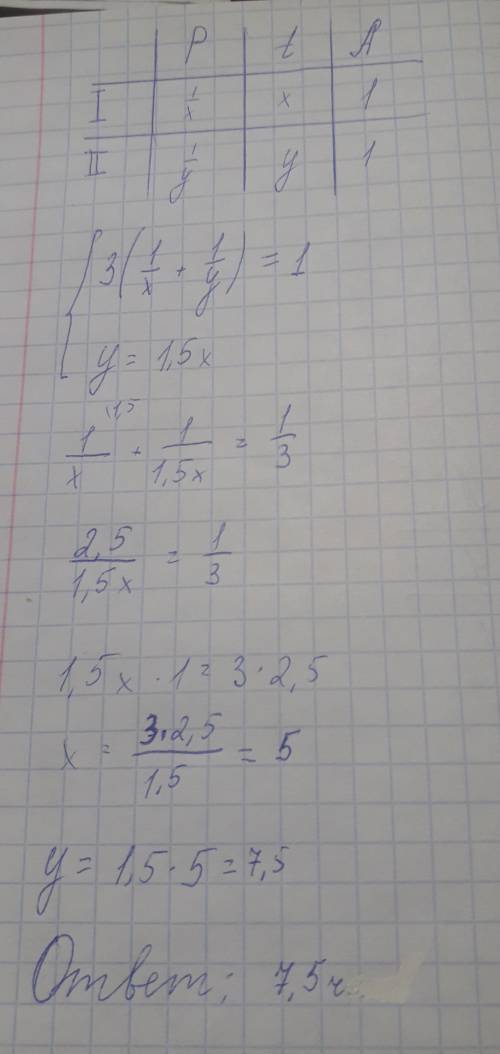 P t A
I 1/x x 1
II 1/y y 1
{ 3(1/x + 1/y) = 1
y = 1,5x
1/x \1,5 + 1/1,5x = 1/3
2,5/1,5x = 1/3
1,5x · 1 = 3 · 2,5
x = 3·2,5/1,5 = 5
y = 1,5·5 = 7,5
Ответ: 7,5ч.